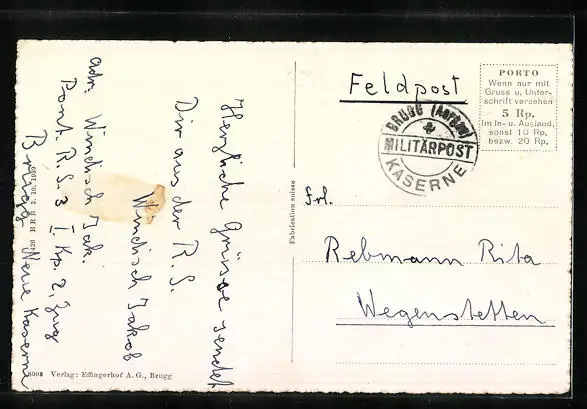 Herzliche Grüsse sendet
Dir aus der R.S.
Windisch Jakob
adr. Windisch Jak.
Pont. R.S. 3 I Kp. 2. Zug
Brugg Neue Kaserne
426 B R B 2. 10. 1939
8008 Verlag: Effingerhof A. G., Brugg
Fabrication suisse
Feldpost
BRUGG (Aargau)
MILITÄRPOST
KASERNE
PORTO
Wenn nur mit
Gruss u. Unter-
schrift versehen
5 Rp.
Im In- u. Ausland,
sonst 10 Rp.
bezw. 20 Rp.
Frl.
Rebmann Rita
Wegenstetten